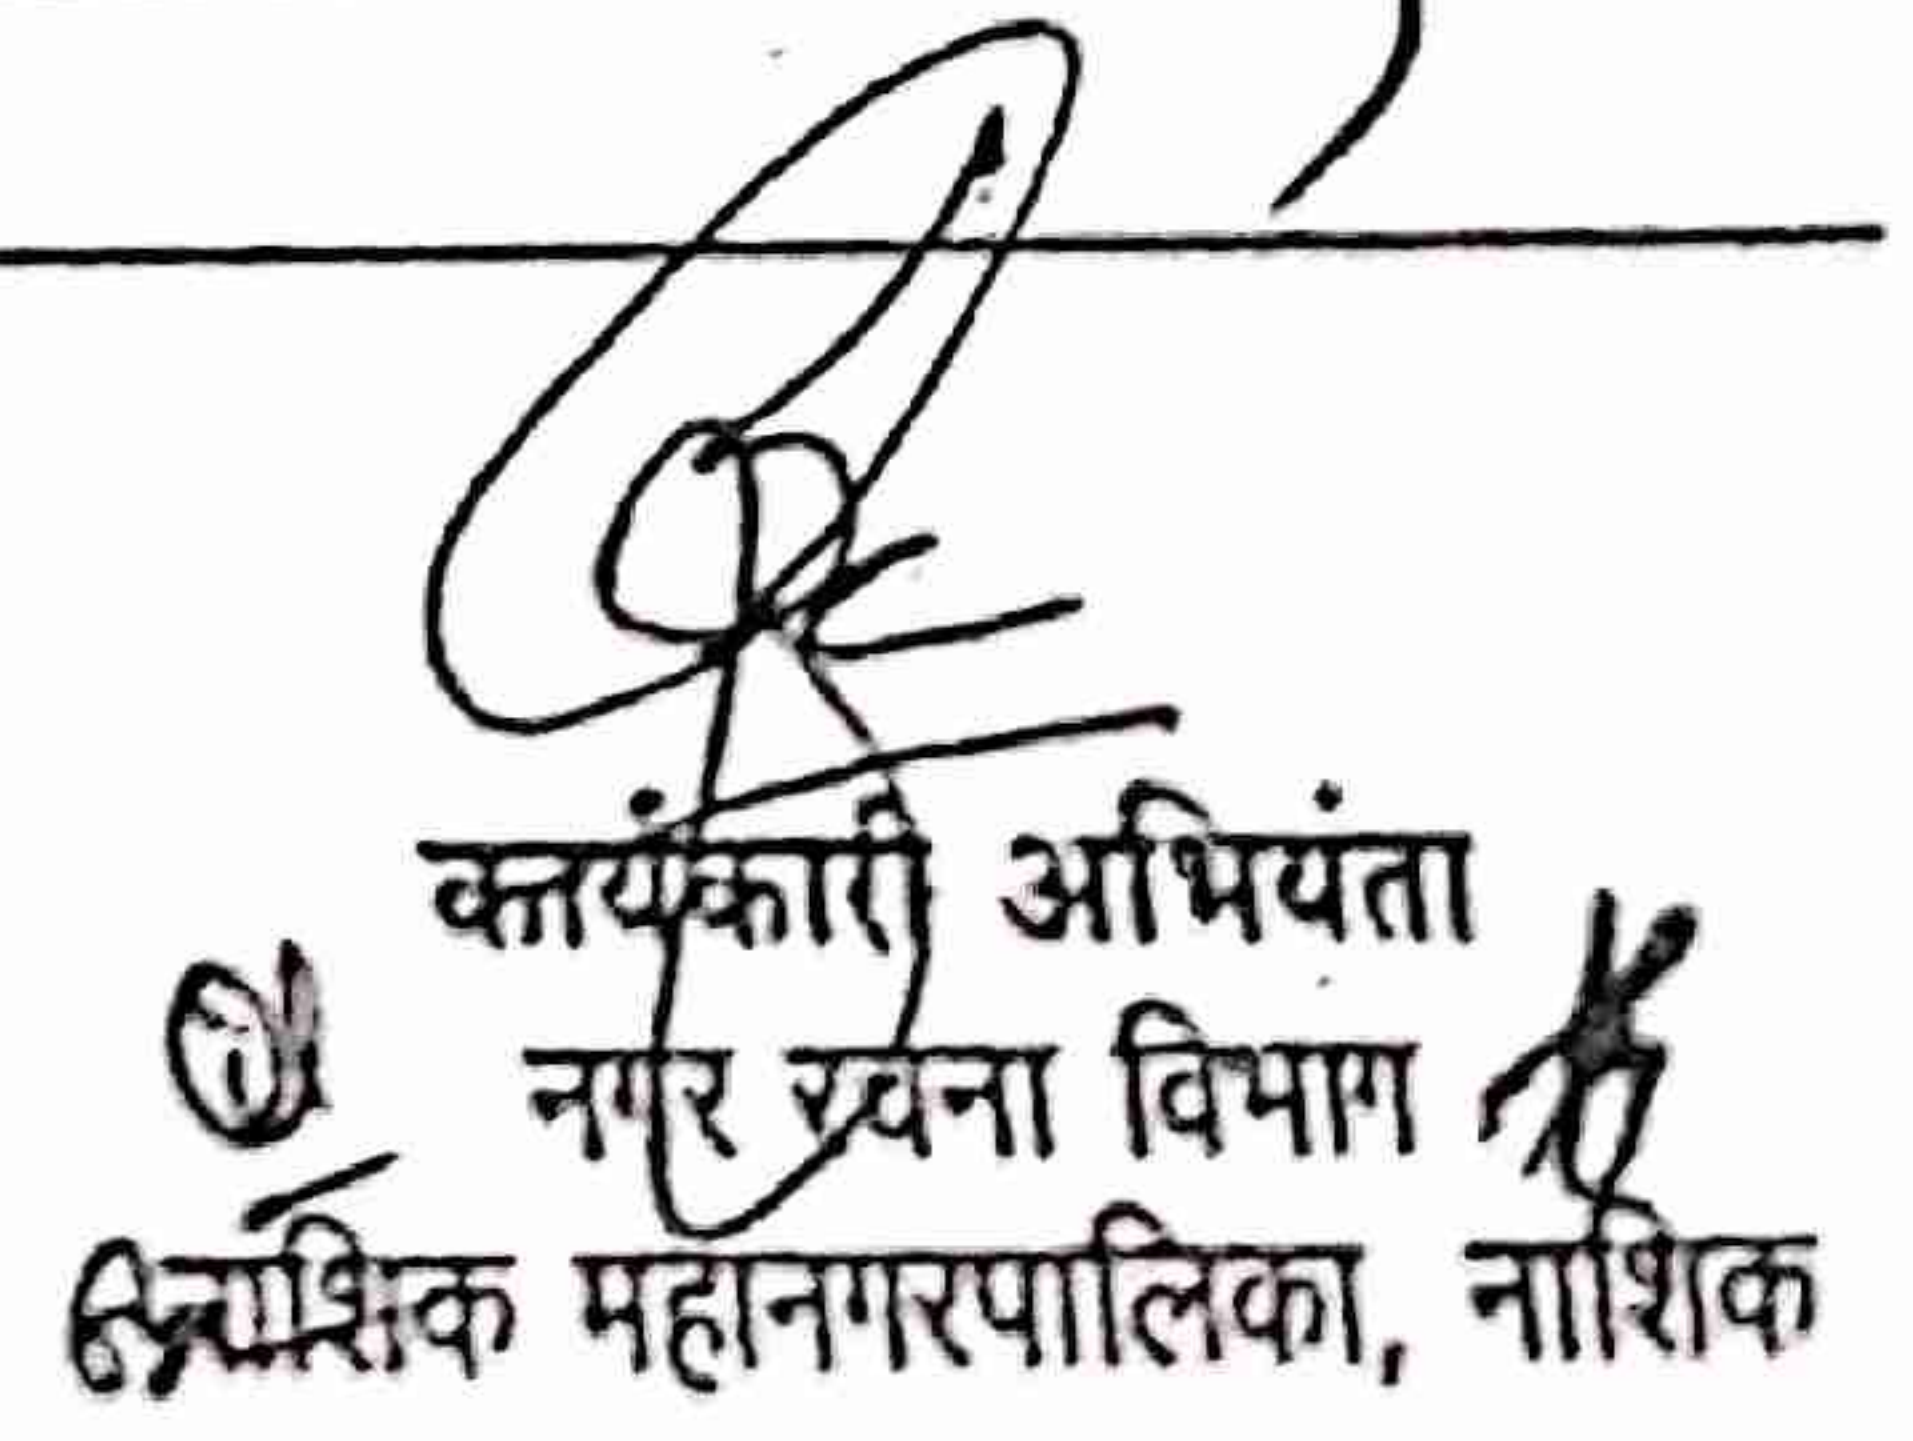 कार्यकारी अभियंता
नगर रचना विभाग
नाशिक महानगरपालिका, नाशिक